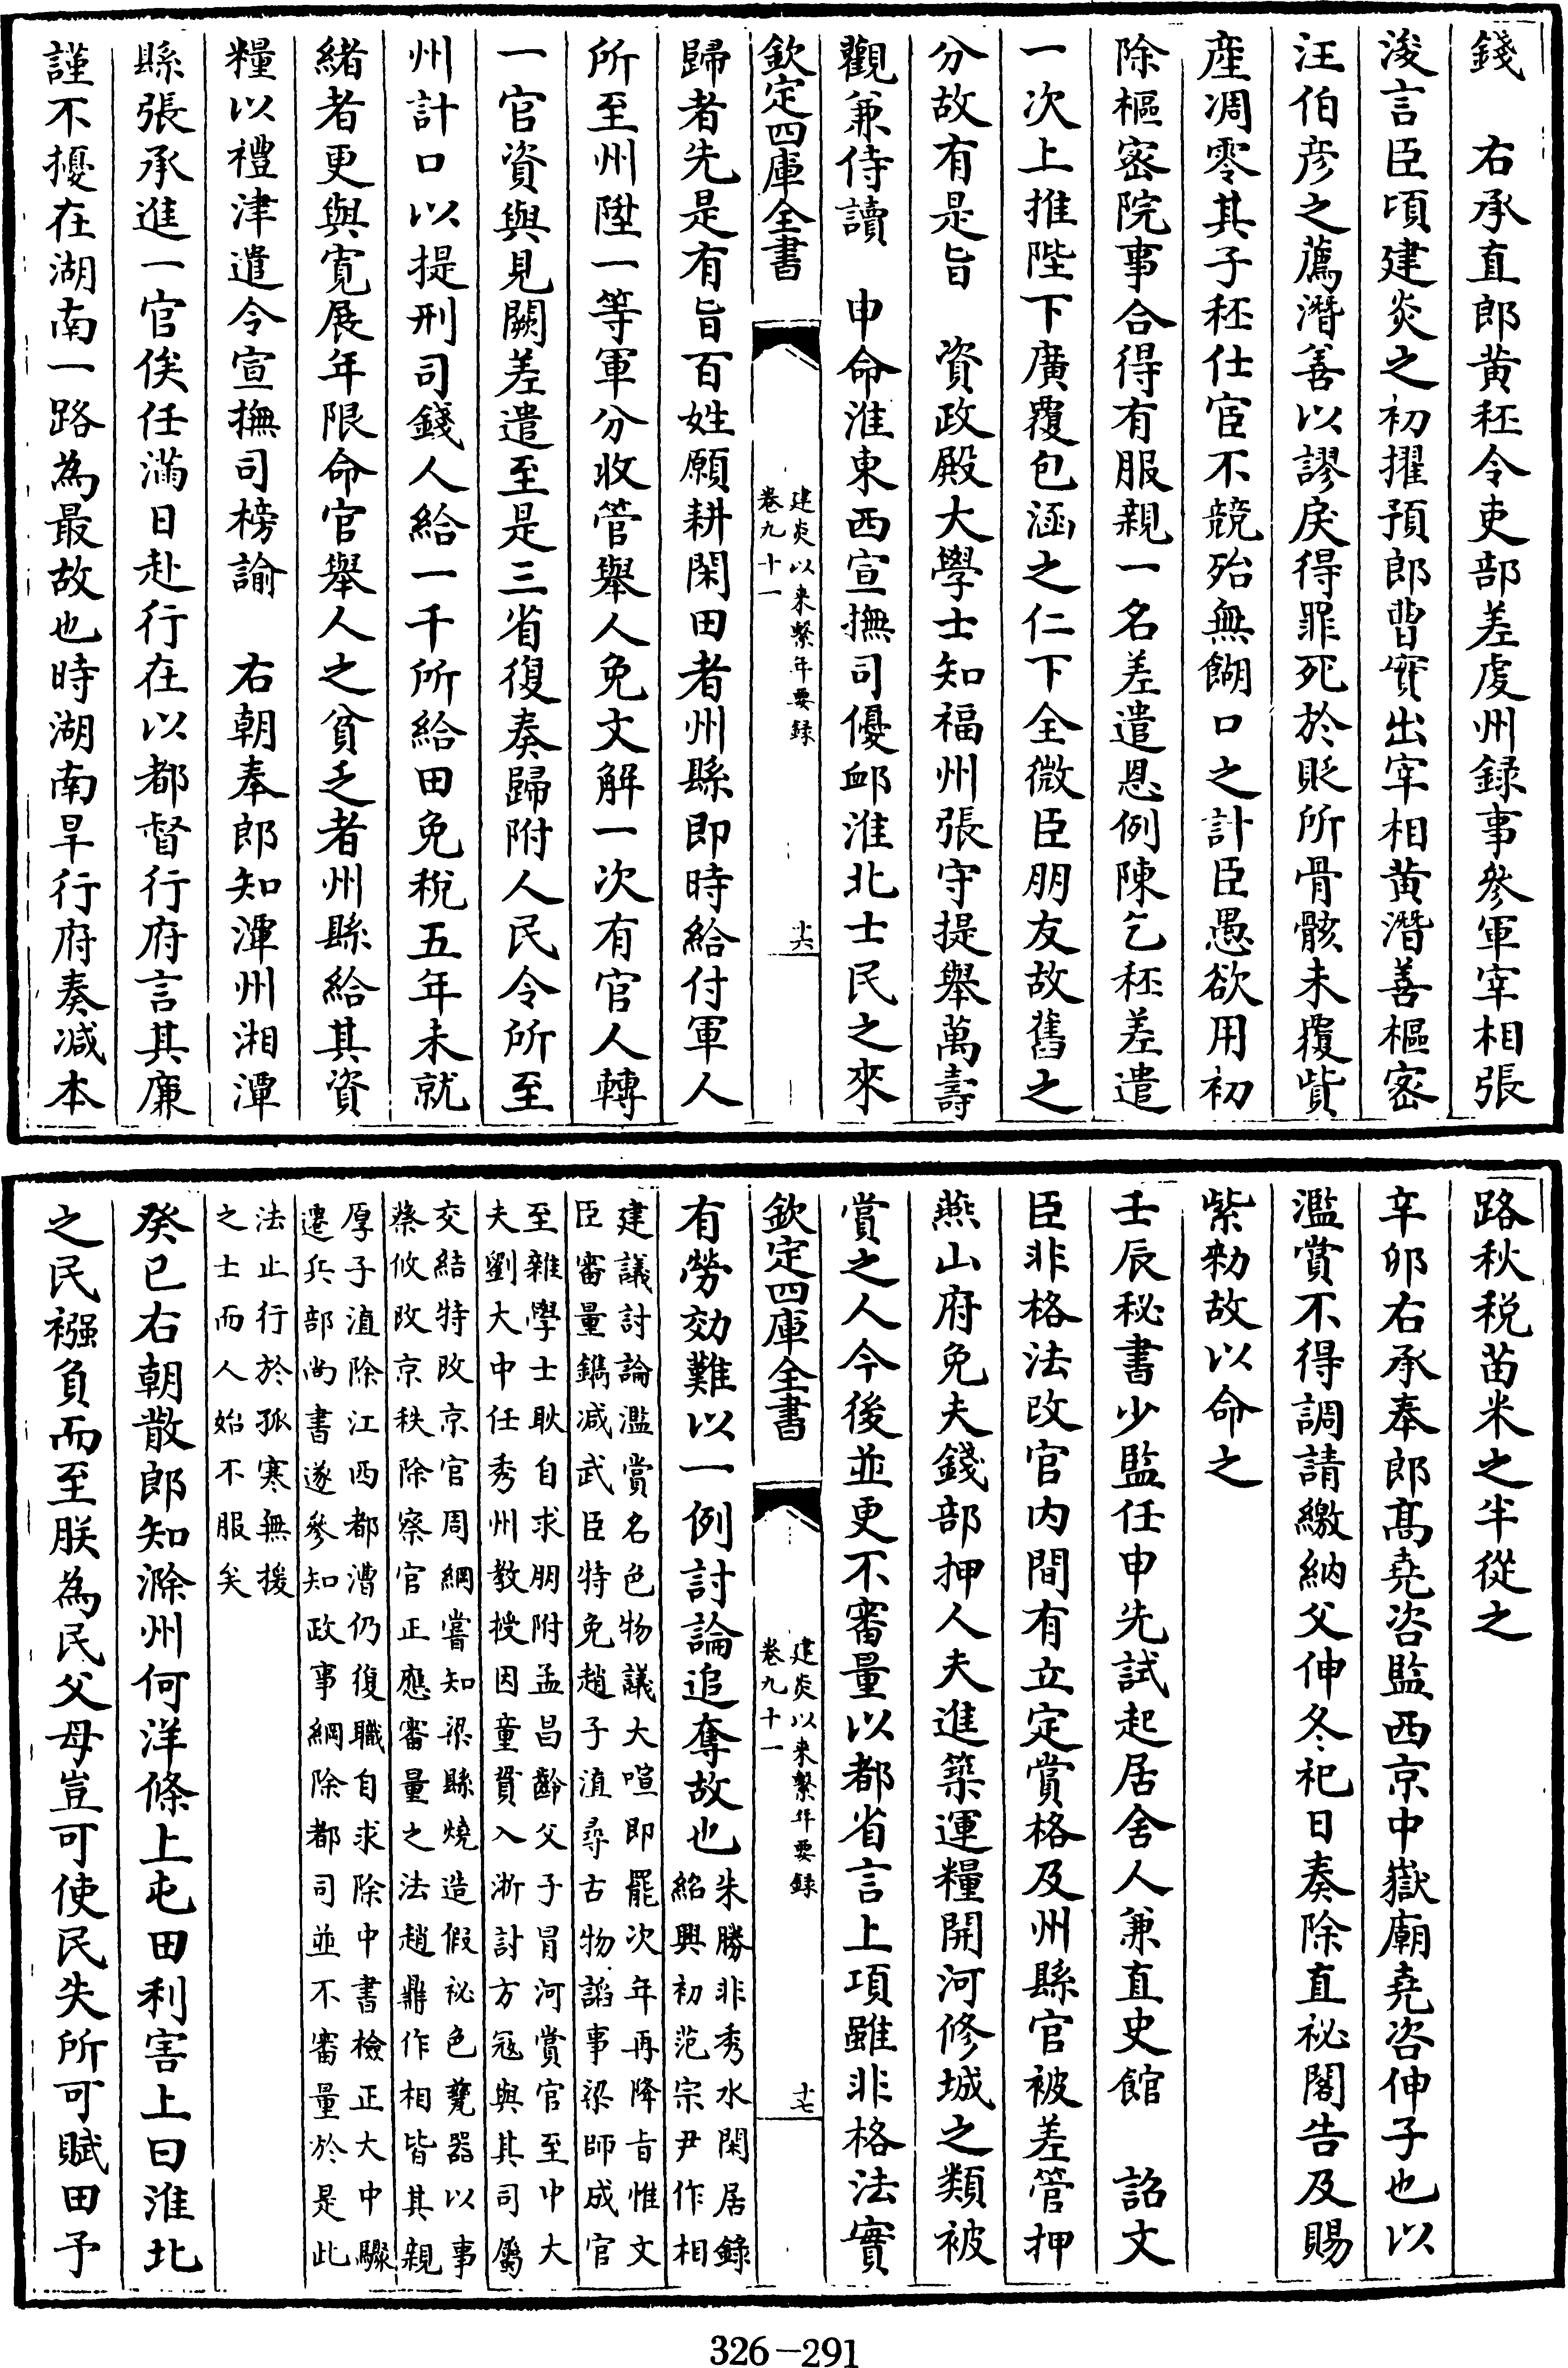 錢　右承直郎黄秠令吏部差虔州録事參軍宰相張
浚言臣頃建炎之初擢預郎曹實出宰相黄潛善樞密
汪伯彦之薦潛善以謬戾得罪死於貶所骨骸未覆貲
産凋零其子秠仕宦不競殆無餬口之計臣愚欲用初
除樞密院事合得有服親一名差遣恩例陳乞秠差遣
一次上推陛下廣覆包涵之仁下全微臣朋友故舊之
分故有是旨　資政殿大學士知福州張守提舉萬壽
觀兼侍讀　申命淮東西宣撫司優䘏淮北士民之來
欽定四庫全書　建炎以来繫年要録　卷九十一　十六
歸者先是有旨百姓願耕閑田者州縣即時給付軍人
所至州陞一等軍分收管舉人免文解一次有官人轉
一官資與見闕差遣至是三省復奏歸附人民令所至
州計口以提刑司錢人給一千所給田免稅五年未就
緒者更與寛展年限命官舉人之貧乏者州縣給其資
糧以禮津遣令宣撫司榜諭　右朝奉郎知潭州湘潭
縣張承進一官俟任滿日赴行在以都督行府言其廉
謹不擾在湖南一路為最故也時湖南旱行府奏減本
路秋税苗米之半從之
辛卯右承奉郎髙堯咨監西京中嶽廟堯咨伸子也以
濫賞不得調請繳納父伸冬祀日奏除直祕閣告及賜
紫勅故以命之
壬辰秘書少監任申先試起居舍人兼直史館　詔文
臣非格法改官内間有立定賞格及州縣官被差管押
燕山府免夫錢部押人夫進築運糧開河修城之類被
賞之人今後並更不審量以都省言上項雖非格法實
欽定四庫全書　建炎以来繫年要録　卷九十一　十七
有勞効難以一例討論追奪故也朱勝非秀水閑居錄
紹興初范宗尹作相
建議討論濫賞名色物議大喧即罷次年再降旨惟文
臣審量鐫减武臣特免趙子淔尋古物謟事梁師成官
至雜學士耿自求朋附孟昌齡父子冒河賞官至中大
夫劉大中任秀州教授因童貫入浙討方冦與其司屬
交結特改京官周綱嘗知梁縣燒造假祕色甆器以事
蔡攸改京秩除察官正應審量之法趙鼎作相皆其親
厚子淔除江西都漕仍復職自求除中書檢正大中驟
遷兵部尚書遂參知政事綱除都司並不審量於是此
法止行於孤寒無援
之士而人始不服矣
癸巳右朝散郎知滁州何洋條上屯田利害上曰淮北
之民襁負而至朕為民父母豈可使民失所可賦田予
326-291